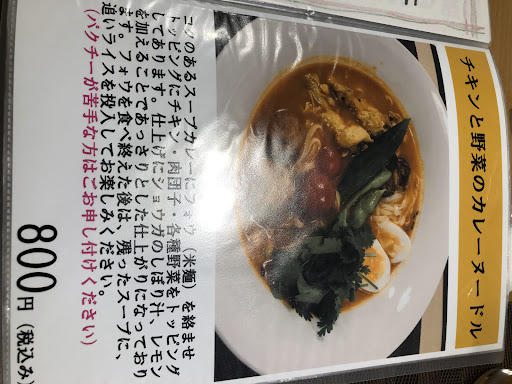 チキンと野菜のカレーヌードル
コクのあるスープカレーにフォウ（米麺）を絡ませ
トッピングにチキン・肉団子・各種野菜をトッピング
してあります。仕上げにショウガのしぼり汁、レモン
を加えることであっさりとした仕上がりになっており
ます。フォウを食べ終えた後は、残ったスープに、
追いライスを投入してお楽しみください。
（パクチーが苦手な方はご申し付けください）
800円（税込み）